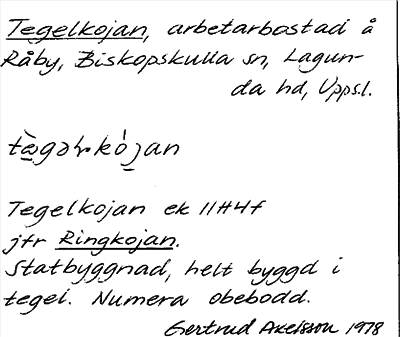 Tegelkojan, arbetarbostad å
Råby, Biskopskulla sn, Lagun-
da hd, Uppsl.
Tegelkojan ek 11H4f
jfr Ringkojan.
Statbyggnad, helt byggd i
tegel. Numera obebodd.
Gertrud Axelsson 1978